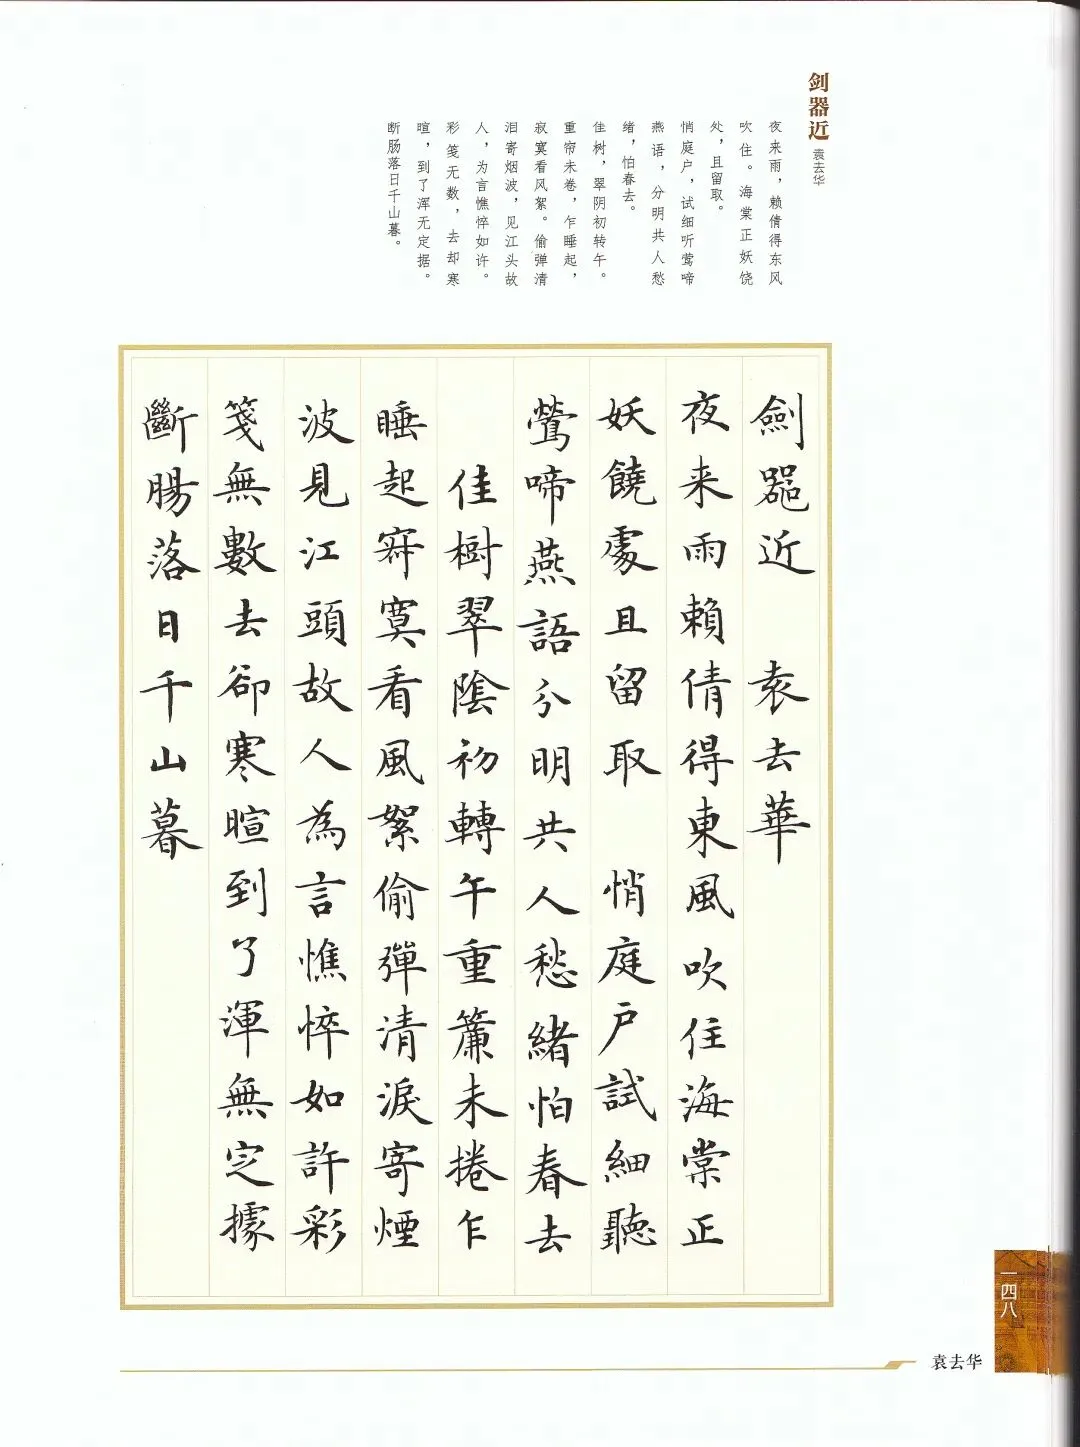 剑器近
袁去华
夜来雨，赖倩得东风
吹住。海棠正妖饶
处，且留取。
悄庭户，试细听莺啼
燕语，分明共人愁
绪，怕春去。
佳树，翠阴初转午。
重帘未卷，乍睡起，
寂寞看风絮。偷弹清
泪寄烟波，见江头故
人，为言憔悴如许。
彩笺无数，去却寒
暄，到了浑无定据。
断肠落日千山暮。
劍器近 袁去華
夜来雨賴倩得東風吹住海棠正
妖饒處且留取 悄庭戶試細聽
鶯啼燕語分明共人愁緒怕春去
佳樹翠陰初轉午重簾未捲乍
睡起寂寞看風絮偷彈清淚寄煙
波見江頭故人為言憔悴如許彩
箋無數去卻寒暄到了渾無定據
斷腸落日千山暮
一四八
袁去华